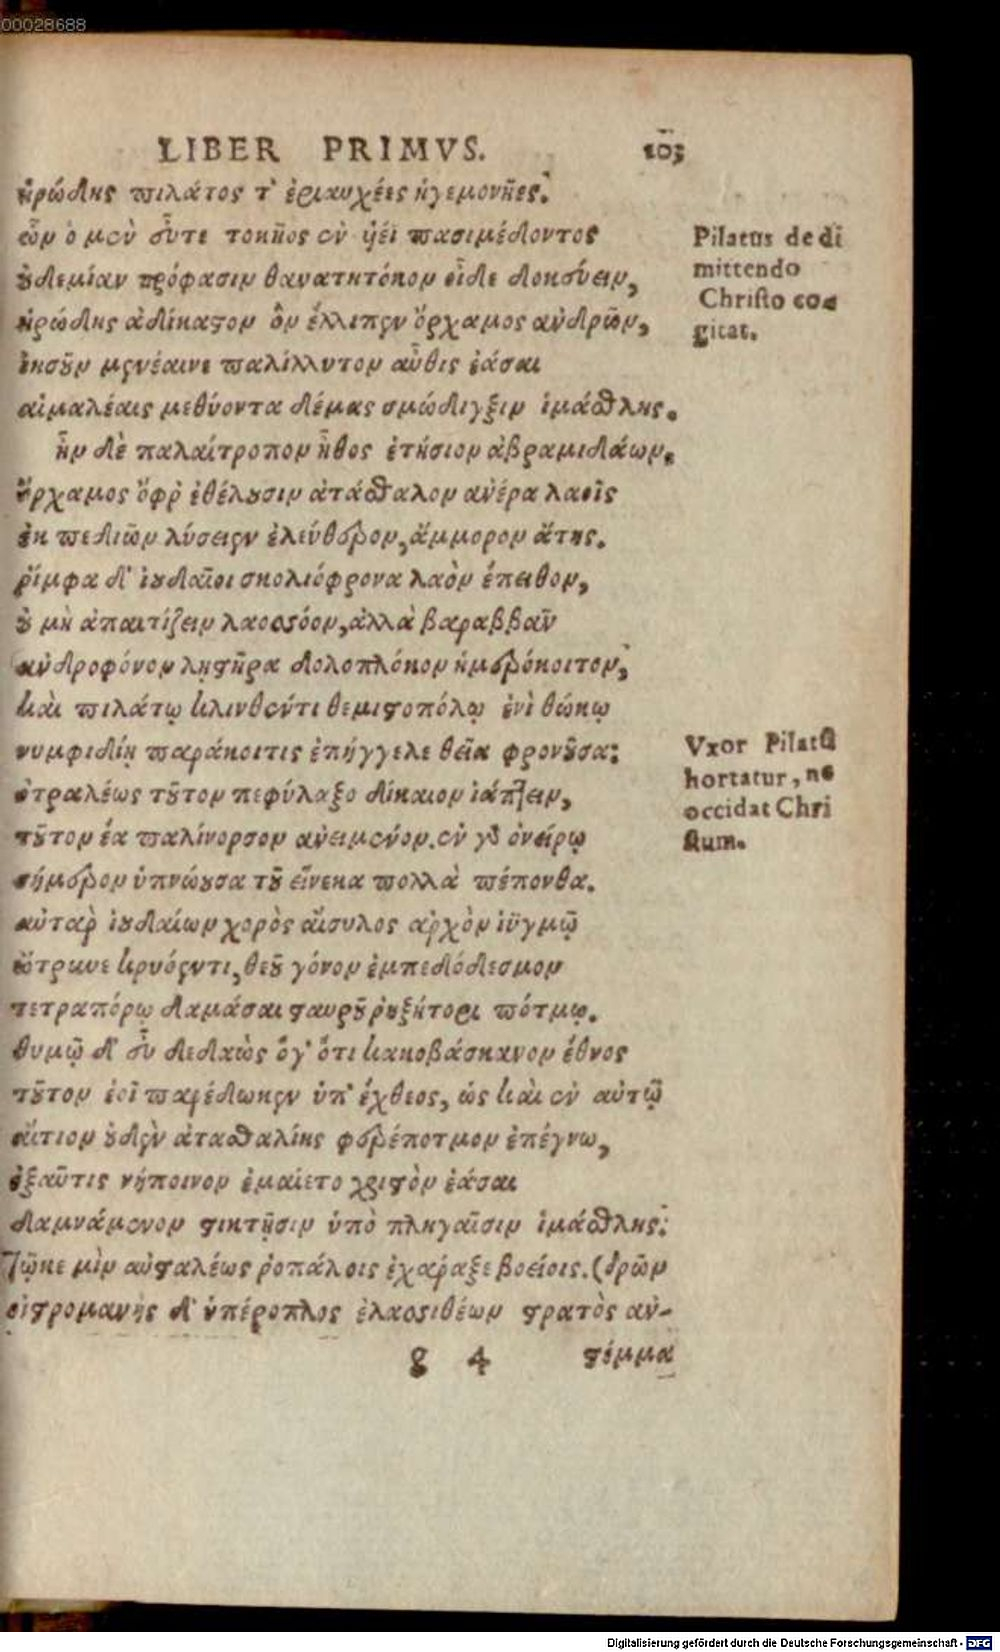 00028688
LIBER PRIMVS. 103
ἡρώδης πιλάτος τ' ἐριαυχέες ἡγεμονῆες.
ὧν ὁ μὲν οὔτε τοκῆος ἐν υἱέϊ πασιμέδοντος
Pilatus de di
οὐδεμίαν πρόφασιν θανατητόκον οἶδε δοκεύειν,
mittendo
Christo co-
ἡρώδης ἀδίκαστον ὃν ἔλλιπεν ὄρχαμος ἀνδρῶν,
gitat.
ἰησοῦν μενέαινε παλίλλυτον αὖθις ἐάσαι
αἱμαλέαις μεθύοντα δέμας σμώδιγξιν ἱμάσθλης.
ἦν δὲ παλαίτροπον ἦθος ἐτήσιον ἀβραμιδάων.
ὄρχαμος ὄφρ' ἐθέλουσιν ἀτάσθαλον ἀνέρα λαοῖς
ἐκ πεδιῶν λύσειεν ἐλεύθερον, ἄμμορον ἄτης.
ῥίμφα δ' ἰουδαῖοι σκολιόφρονα λαὸν ἔπειθον,
οὐ μὴ ἀπαιτίζειν λαοσσόον, ἀλλὰ βαραββᾶν
ἀνδροφόνον ληστῆρα δολοπλόκον ἡμερόκοιτον,
καὶ πιλάτῳ κλινθέντι θεμιστοπόλῳ ἐνὶ θώκῳ
νυμφιδίη παράκοιτις ἐπήγγελε θεῖα φρονοῦσα:
Vxor Pilatū
hortatur, ne
ὀτραλέως τοῦτον πεφύλαξο δίκαιον ἰάπτειν,
occidat Chri
τοῦτον ἔα παλίνορσον ἀνειμένον. ἐν γὰρ ὀνείρῳ
stum.
σήμερον ὑπνώουσα τοῦ εἵνεκα πολλὰ πέπονθα.
αὐτὰρ ἰουδαίων χορὸς αἴσυλος ἀρχὸν ἰϋγμῷ
ὤτρυνε κρυόεντι, θεοῦ γόνον ἐμπεδόδεσμον
τετραπόρῳ δαμάσαι σταυροῦ ῥυξήτορι πότμῳ.
θυμῷ δ' οὖ δεδαὼς ὅγ' ὅτι κακοβάσκανον ἔθνος
τοῦτον ἑοῖ παρέδωκεν ὑπ' ἔχθεος, ὡς καὶ ἐν αὐτῷ
αἴτιον οὐδὲν ἀτασθαλίης φερέποτμον ἐπέγνω,
ἐξαῦτις νήποινον ἐμαίετο χριστὸν ἐάσαι
δαμνάμενον στικτῇσιν ὑπὸ πληγαῖσιν ἱμάσθλης:
τῷκε μὶν αὐσταλέως ῥοπάλοις ἐχάραξε βοείοις. (δρῶν
οἰστρομανὴς δ' ὑπέροπλος ἐλαοσιθέων στρατὸς ἀν-
g 4 στέμμα
Digitalisierung gefördert durch die Deutsche Forschungsgemeinschaft - DFG